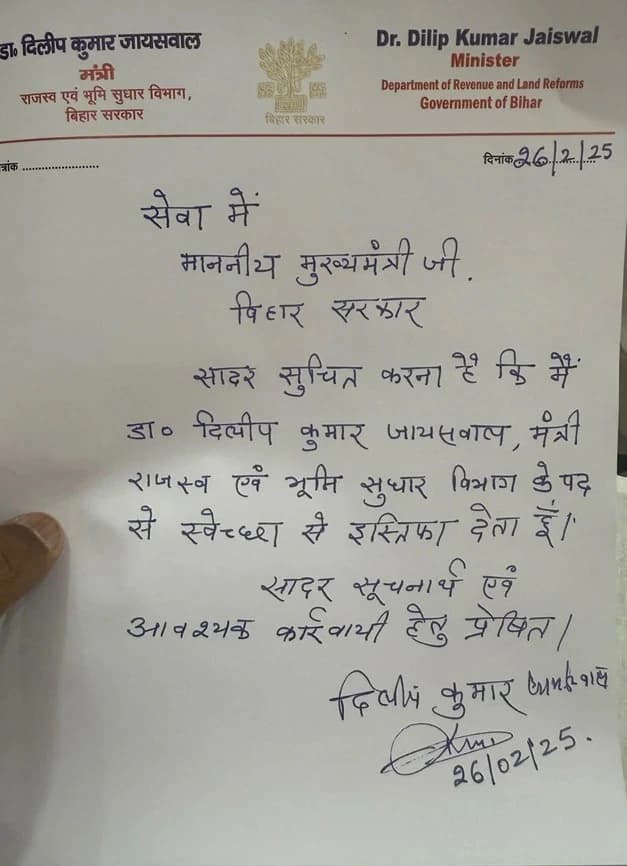 डा० दिलीप कुमार जायसवाल
मंत्री
राजस्व एवं भूमि सुधार विभाग,
बिहार सरकार
बिहार सरकार
Dr. Dilip Kumar Jaiswal
Minister
Department of Revenue and Land Reforms
Government of Bihar
त्रांक ........................
दिनांक 26/2/25
सेवा में
माननीय मुख्यमंत्री जी.
बिहार सरकार
सादर सुचित करना है कि मैं
डा० दिलीप कुमार जायसवाल, मंत्री
राजस्व एवं भूमि सुधार विभाग के पद
से स्वेच्छा से इस्तिफा देता हूँ।
सादर सूचनार्थ एवं
आवश्यक कार्रवायी हेतु प्रेषित।
दिलीप कुमार जायसवाल
26/02/25.